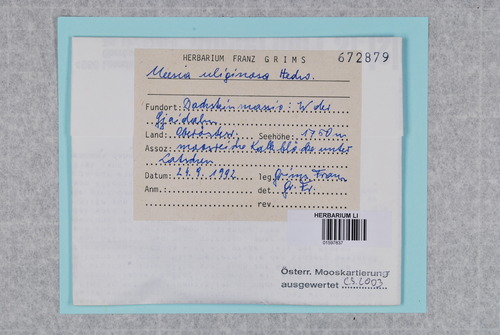 HERBARIUM FRANZ GRIMS 672879
Meesia uliginosa Hedw.
Fundort: Dachsteinmassiv: W der
Gjaidalm
Land: Oberösterr. Seehöhe: 1750 m
Assoz: moosreiche Kalkblöcke unter
Latschen
Datum: 21.9.1992 leg. Grims Franz
Anm.: det. Gr. Fr.
rev.
HERBARIUM LI
Österr. Mooskartierung
ausgewertet CS 2003